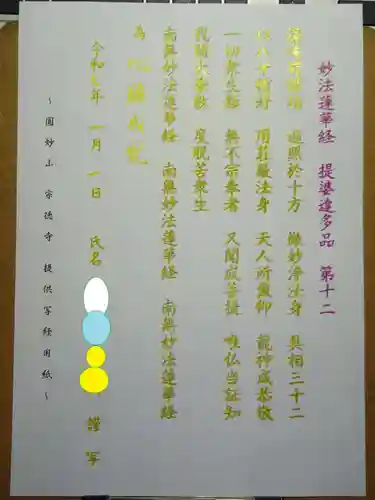 妙法蓮華経　提婆達多品　第十二
深達罪福相　遍照於十方　微妙浄法身　具相三十二
以八十種好　用荘厳法身　天人所戴仰　龍神咸恭敬
一切衆生類　無不宗奉者　又聞成菩提　唯仏当証知
我闡大乗教　度脱苦衆生
南無妙法蓮華経　南無妙法蓮華経　南無妙法蓮華経
為　心願成就
令和七年　一月一日　氏名　謹写
～圓妙山　宗徳寺　提供写経用紙～